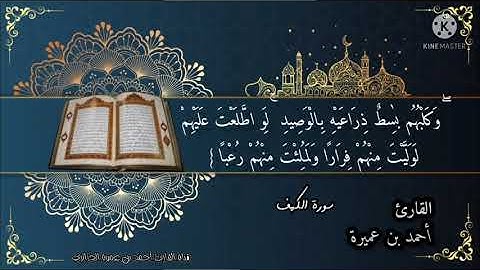 KINEMASTER
وَكَلْبُهُم بَٰسِطٌ ذِرَاعَيْهِ بِالْوَصِيدِ ۚ لَوِ اطَّلَعْتَ عَلَيْهِمْ
لَوَلَّيْتَ مِنْهُمْ فِرَارًا وَلَمُلِئْتَ مِنْهُمْ رُعْبًا }
سورة الكهف
القارئ
أحمد بن عميرة
قناة القارئ أحمد بن عميرة الجزائري